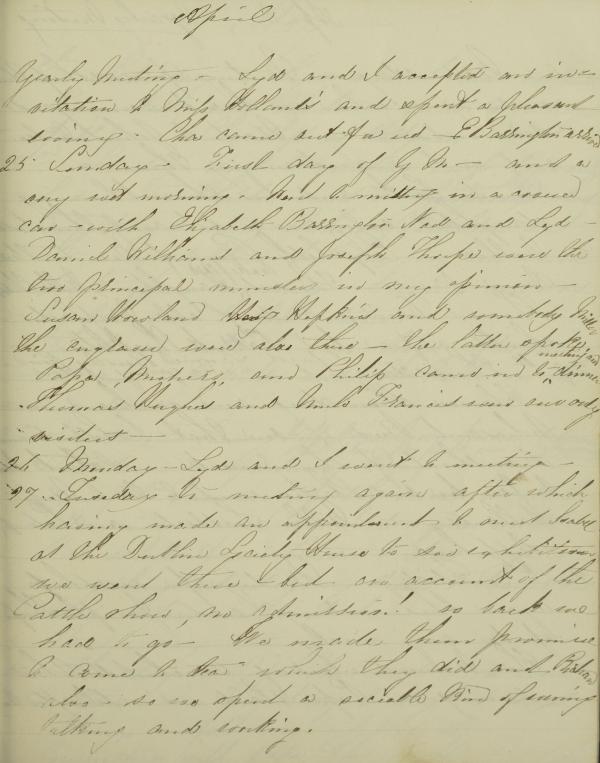 April
Yearly Meeting - Lyd and I accepted an in-
vitation to Miss Holland's and spent a pleasant
evening. Cha came out for us - E Barrington arrived
25 Sunday - First day of Y M - and a
very wet morning. Went to meeting in a covered
car - with Elizabeth Barrington Ned and Lyd -
Daniel Williams and Joseph Thorpe were the
two principal ministers in my opinion -
Susan Howland Hopkins and somebody
the england were also there - the latter spoke
Papa, and Philip came in to dinner
meeting
Thomas Hughes and Francis were our only
visitors -
26 Monday - Lyd and I went to meeting -
27 Tuesday - to meeting again after which
having made an appointment to meet Isabel
at the Dublin Society House to see exhibition
we went there - but on account of the
Cattle show, no admission! so back we
had to go - We made them promise
to come to tea which they did and
also - so we spent a sociable kind of evening
talking and working.